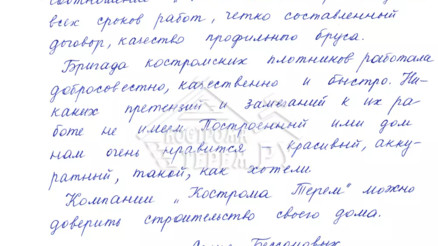 соотношение
всех сроков работ, четко составленный
договор, качество профильнпо бруса.
Бригада костромских плотников работала
добросовестно, качественно и быстро. Ни-
каких претензий и замечаний к их ра-
боте не имеем. Построенный ими дом
нам очень нравится - красивый, акку-
ратный, такой, как хотели
Компании "Кострома Терем" можно
доверить строительство своего дома.
Бессоновых